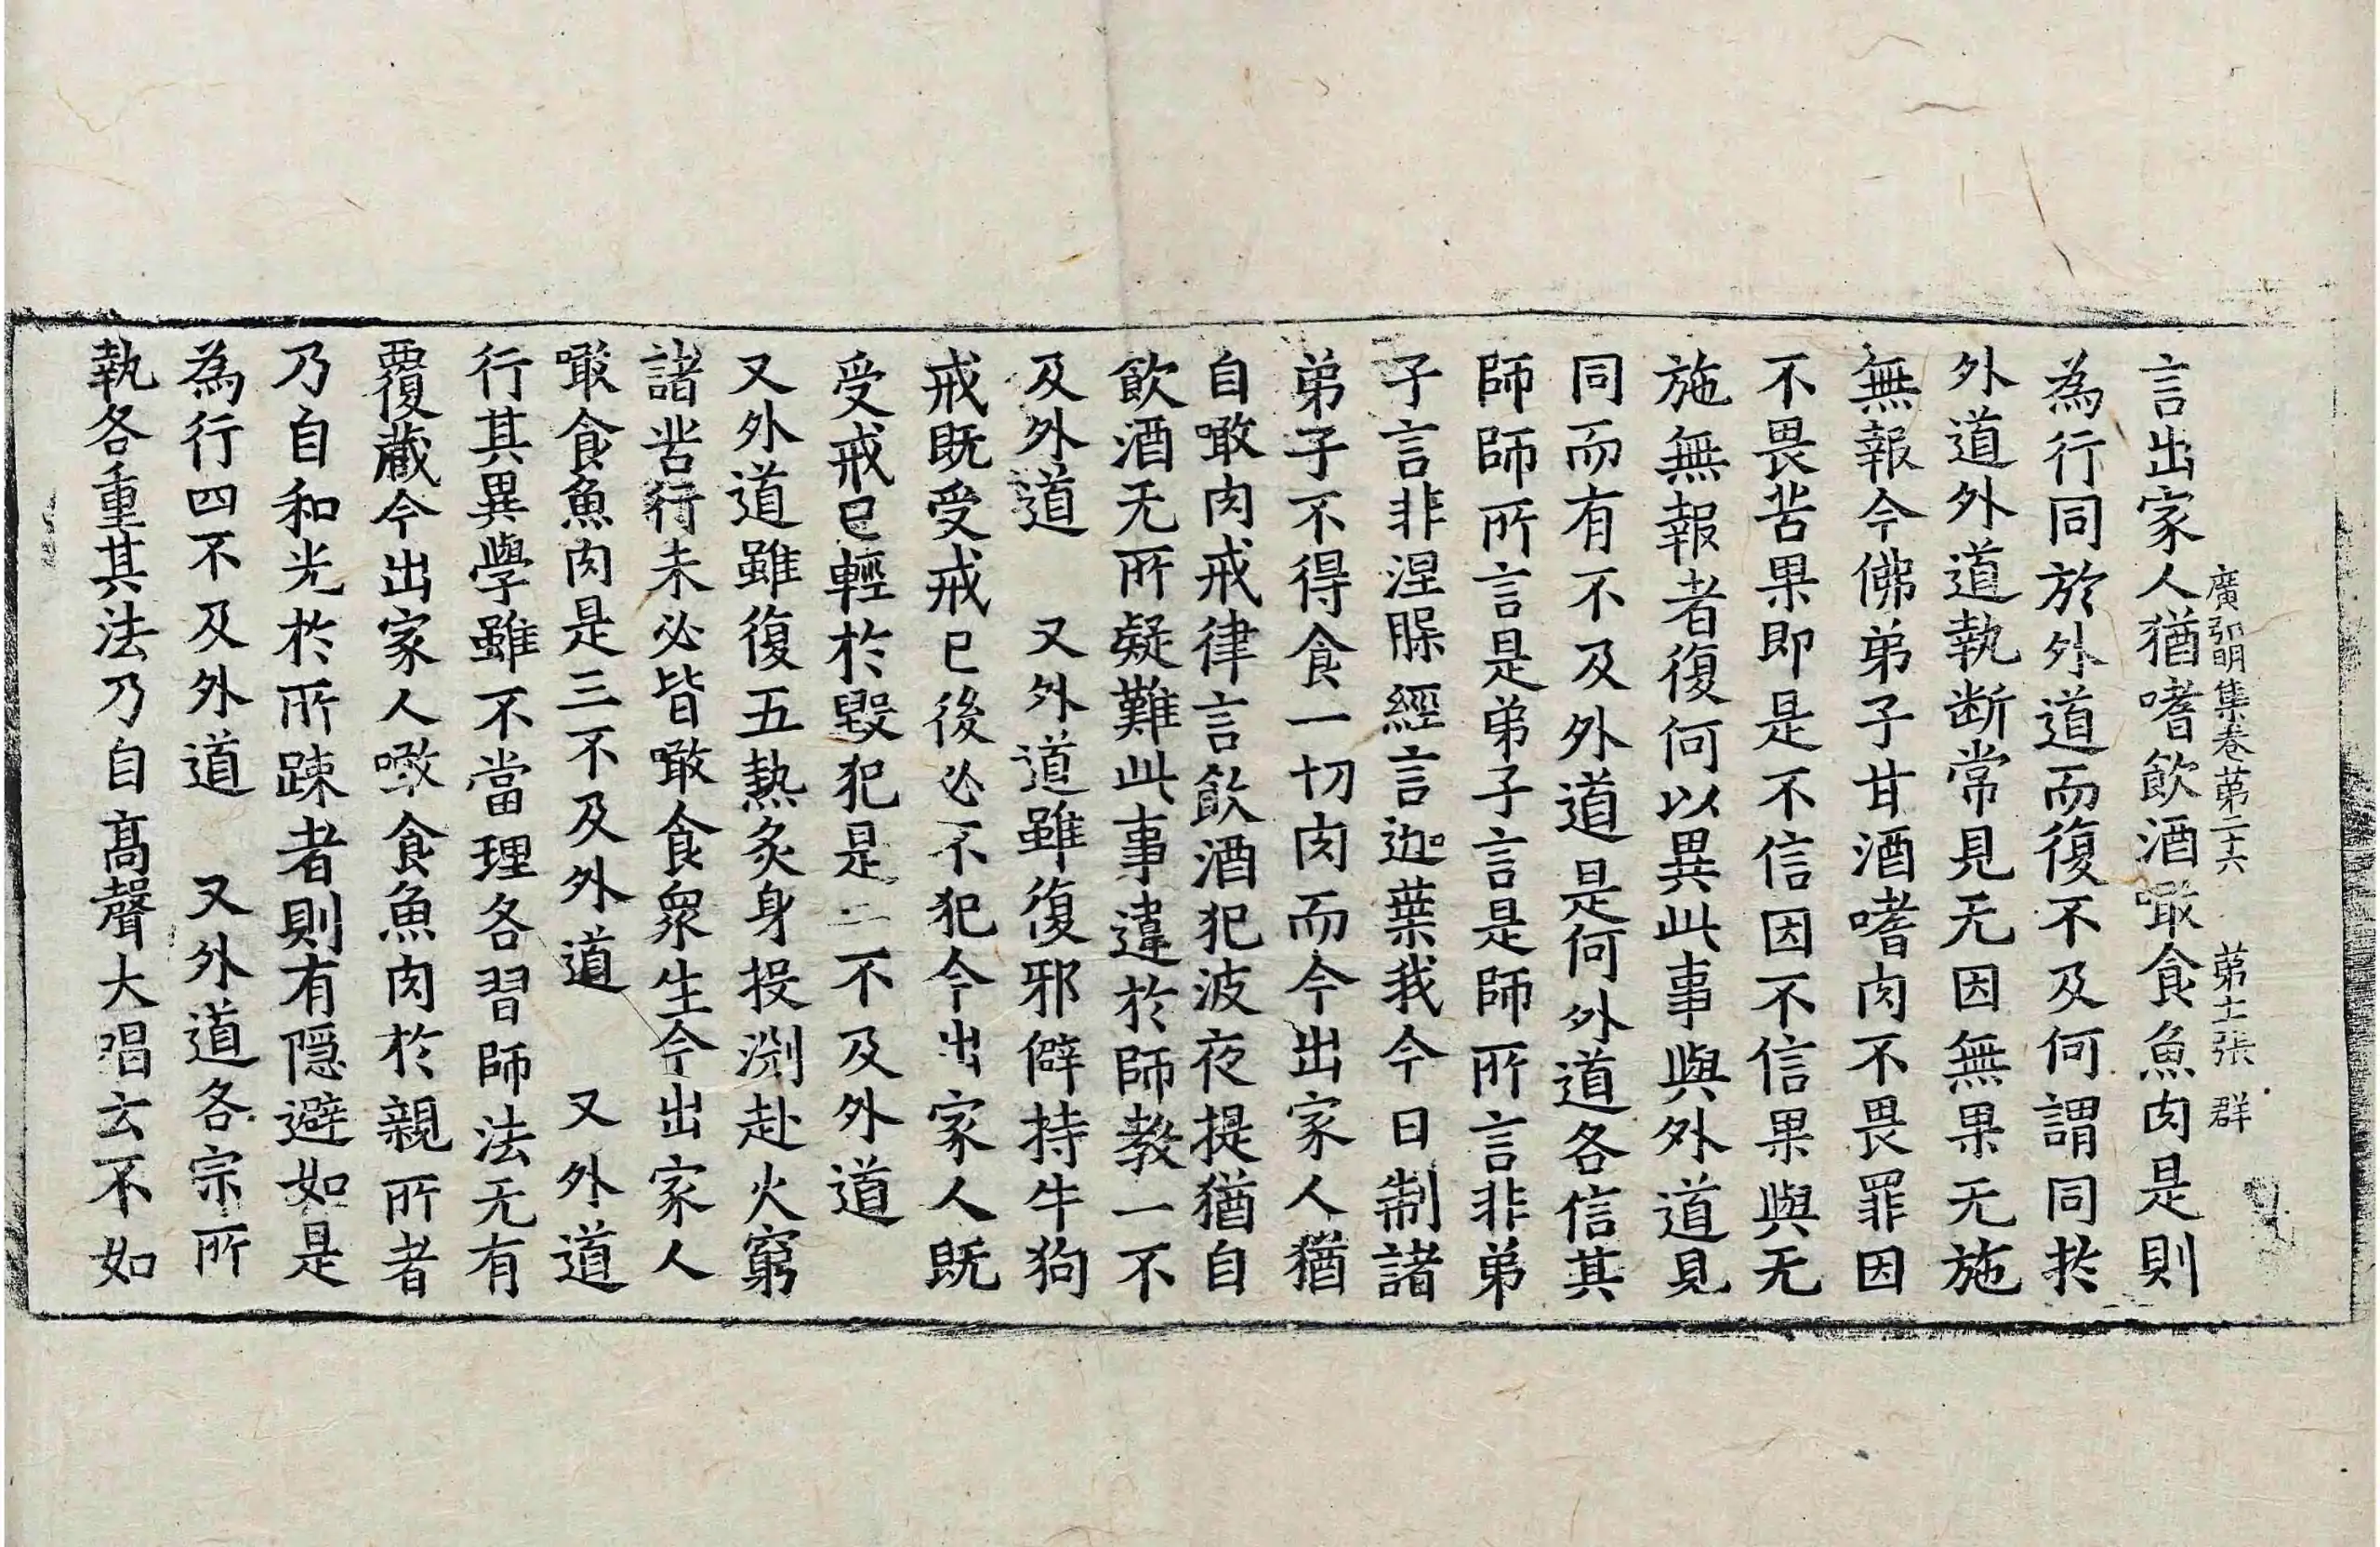 廣弘明集卷苐二十六　苐十一張　群
言出家人猶嗜飲酒噉食魚肉是則
為行同於外道而復不及何謂同於
外道外道執断常見无因無果无施
無報今佛弟子甘酒嗜肉不畏罪因
不畏苦果即是不信因不信果與无
施無報者復何以異此事與外道見
同而有不及外道是何外道各信其
師師所言是弟子言是師所言非弟
子言非涅脲經言迦葉我今日制諸
弟子不得食一切肉而今出家人猶
自噉肉戒律言飲酒犯波夜提猶自
飲酒无所疑難此事違於師教一不
及外道　又外道雖復邪僻持牛狗
戒既受戒已後必不犯今出家人既
受戒已輕於毀犯是二不及外道
又外道雖復五熱炙身投渊赴火窮
諸苦行未必皆噉食衆生今出家人
噉食魚肉是三不及外道　又外道
行其異學雖不當理各習師法无有
覆藏今出家人噉食魚肉於親所者
乃自和光於所踈者則有隱避如是
為行四不及外道　又外道各宗所
執各重其法乃自高聲大唱云不如